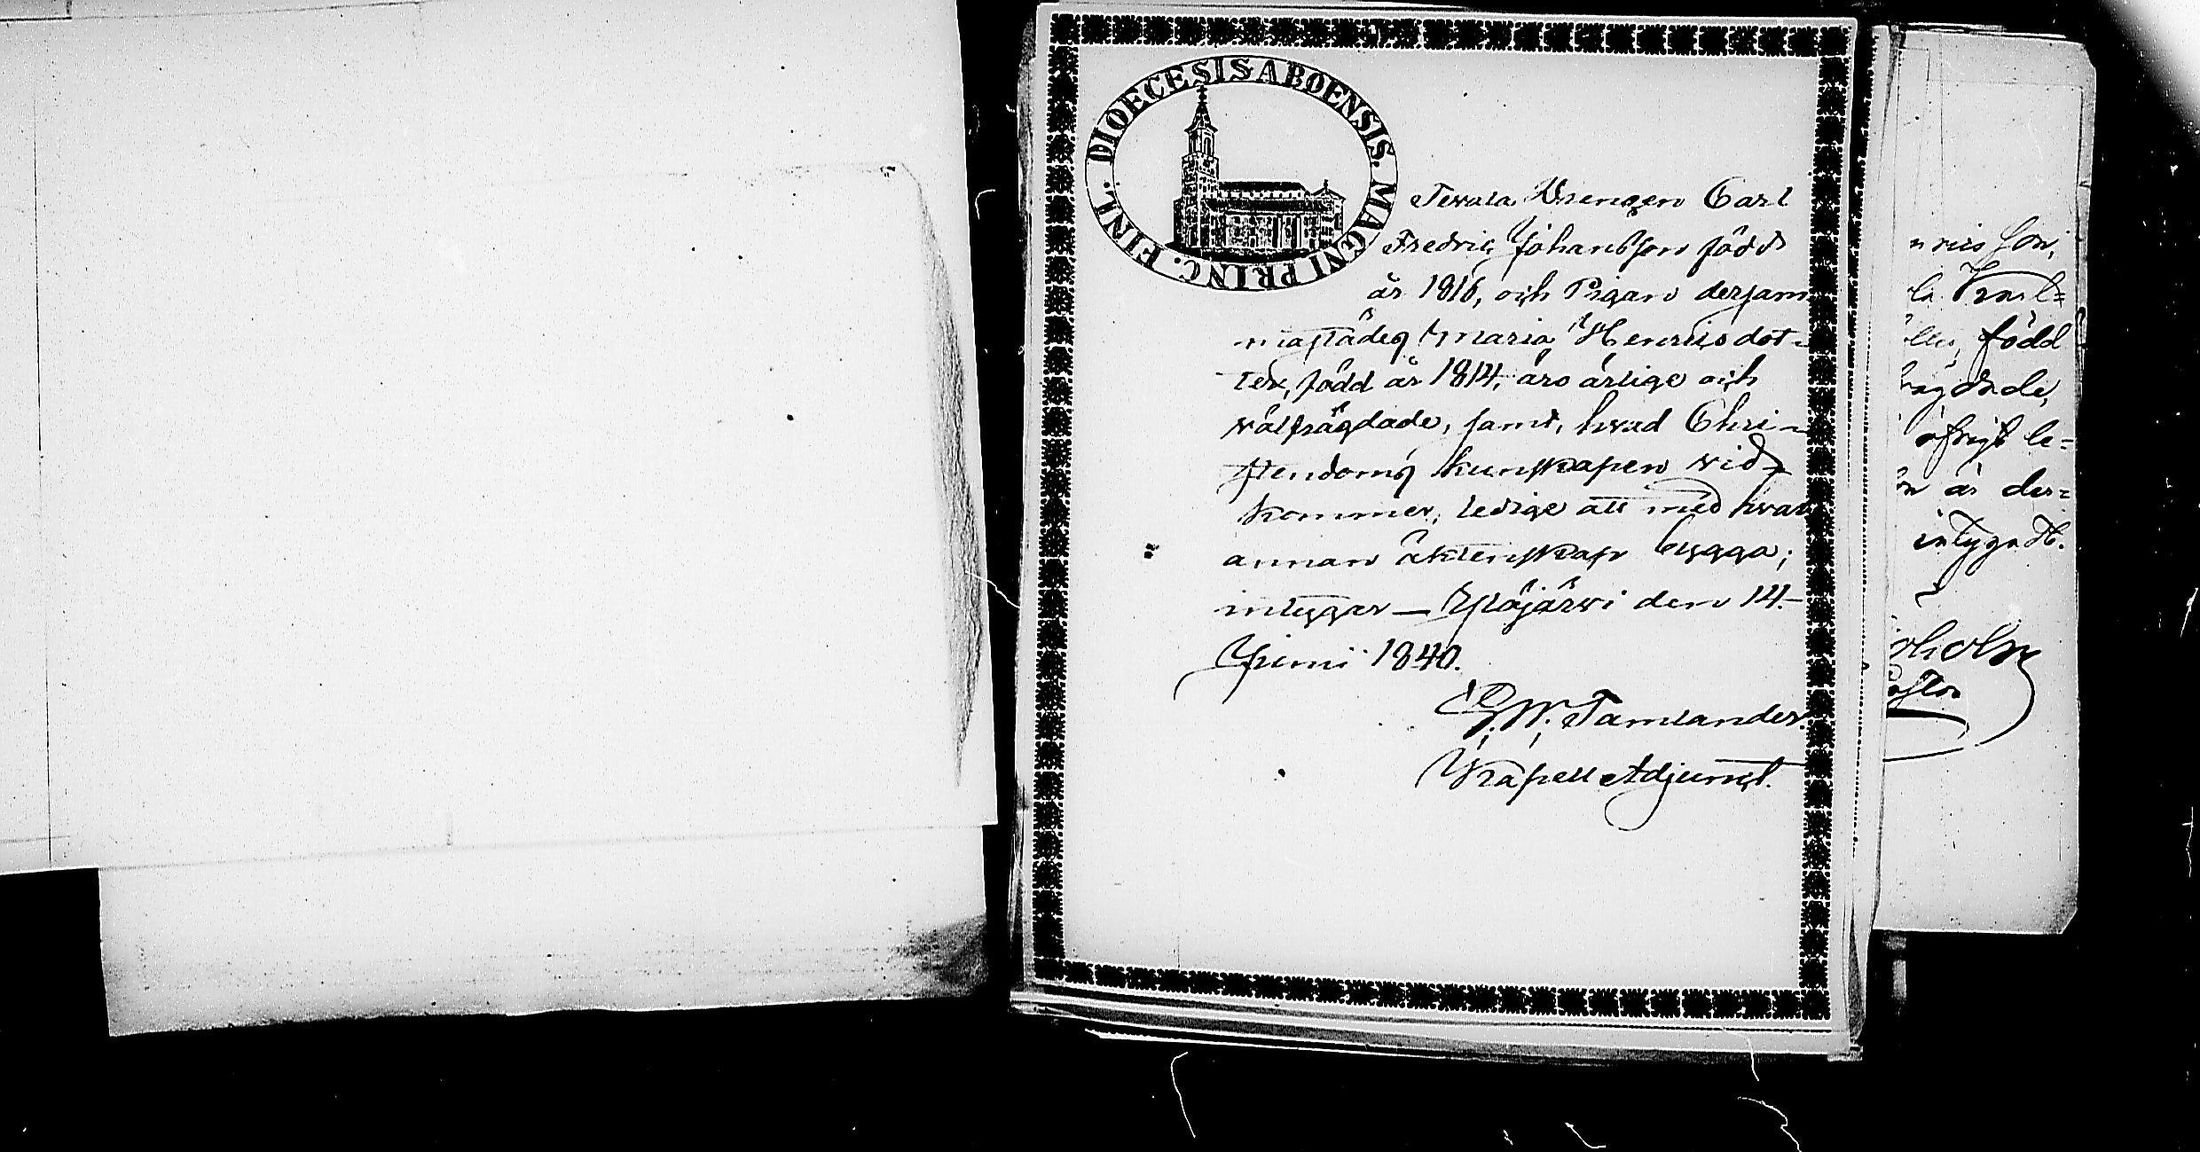 DIOECESIS ABOENSIS. MAGNI PRINC. FINL.
Tevala Drengen Carl
Fredric Johansson född
år 1816, och Pigan dersam
mastädes Maria Henricsdot-
ter, född år 1814, äro ärlige och
välfrägdade, samt, hvad Chri-
stendoms kunskapen vid-
kommer, ledige att med hvar
annan äktenskap bygga;
intygar — Ylöjärvi den 14.
Junii 1840.
G. W. Tamlander.
Kapells Adjunct.
son,
född
öfrigt le=
är der=
intygadt.